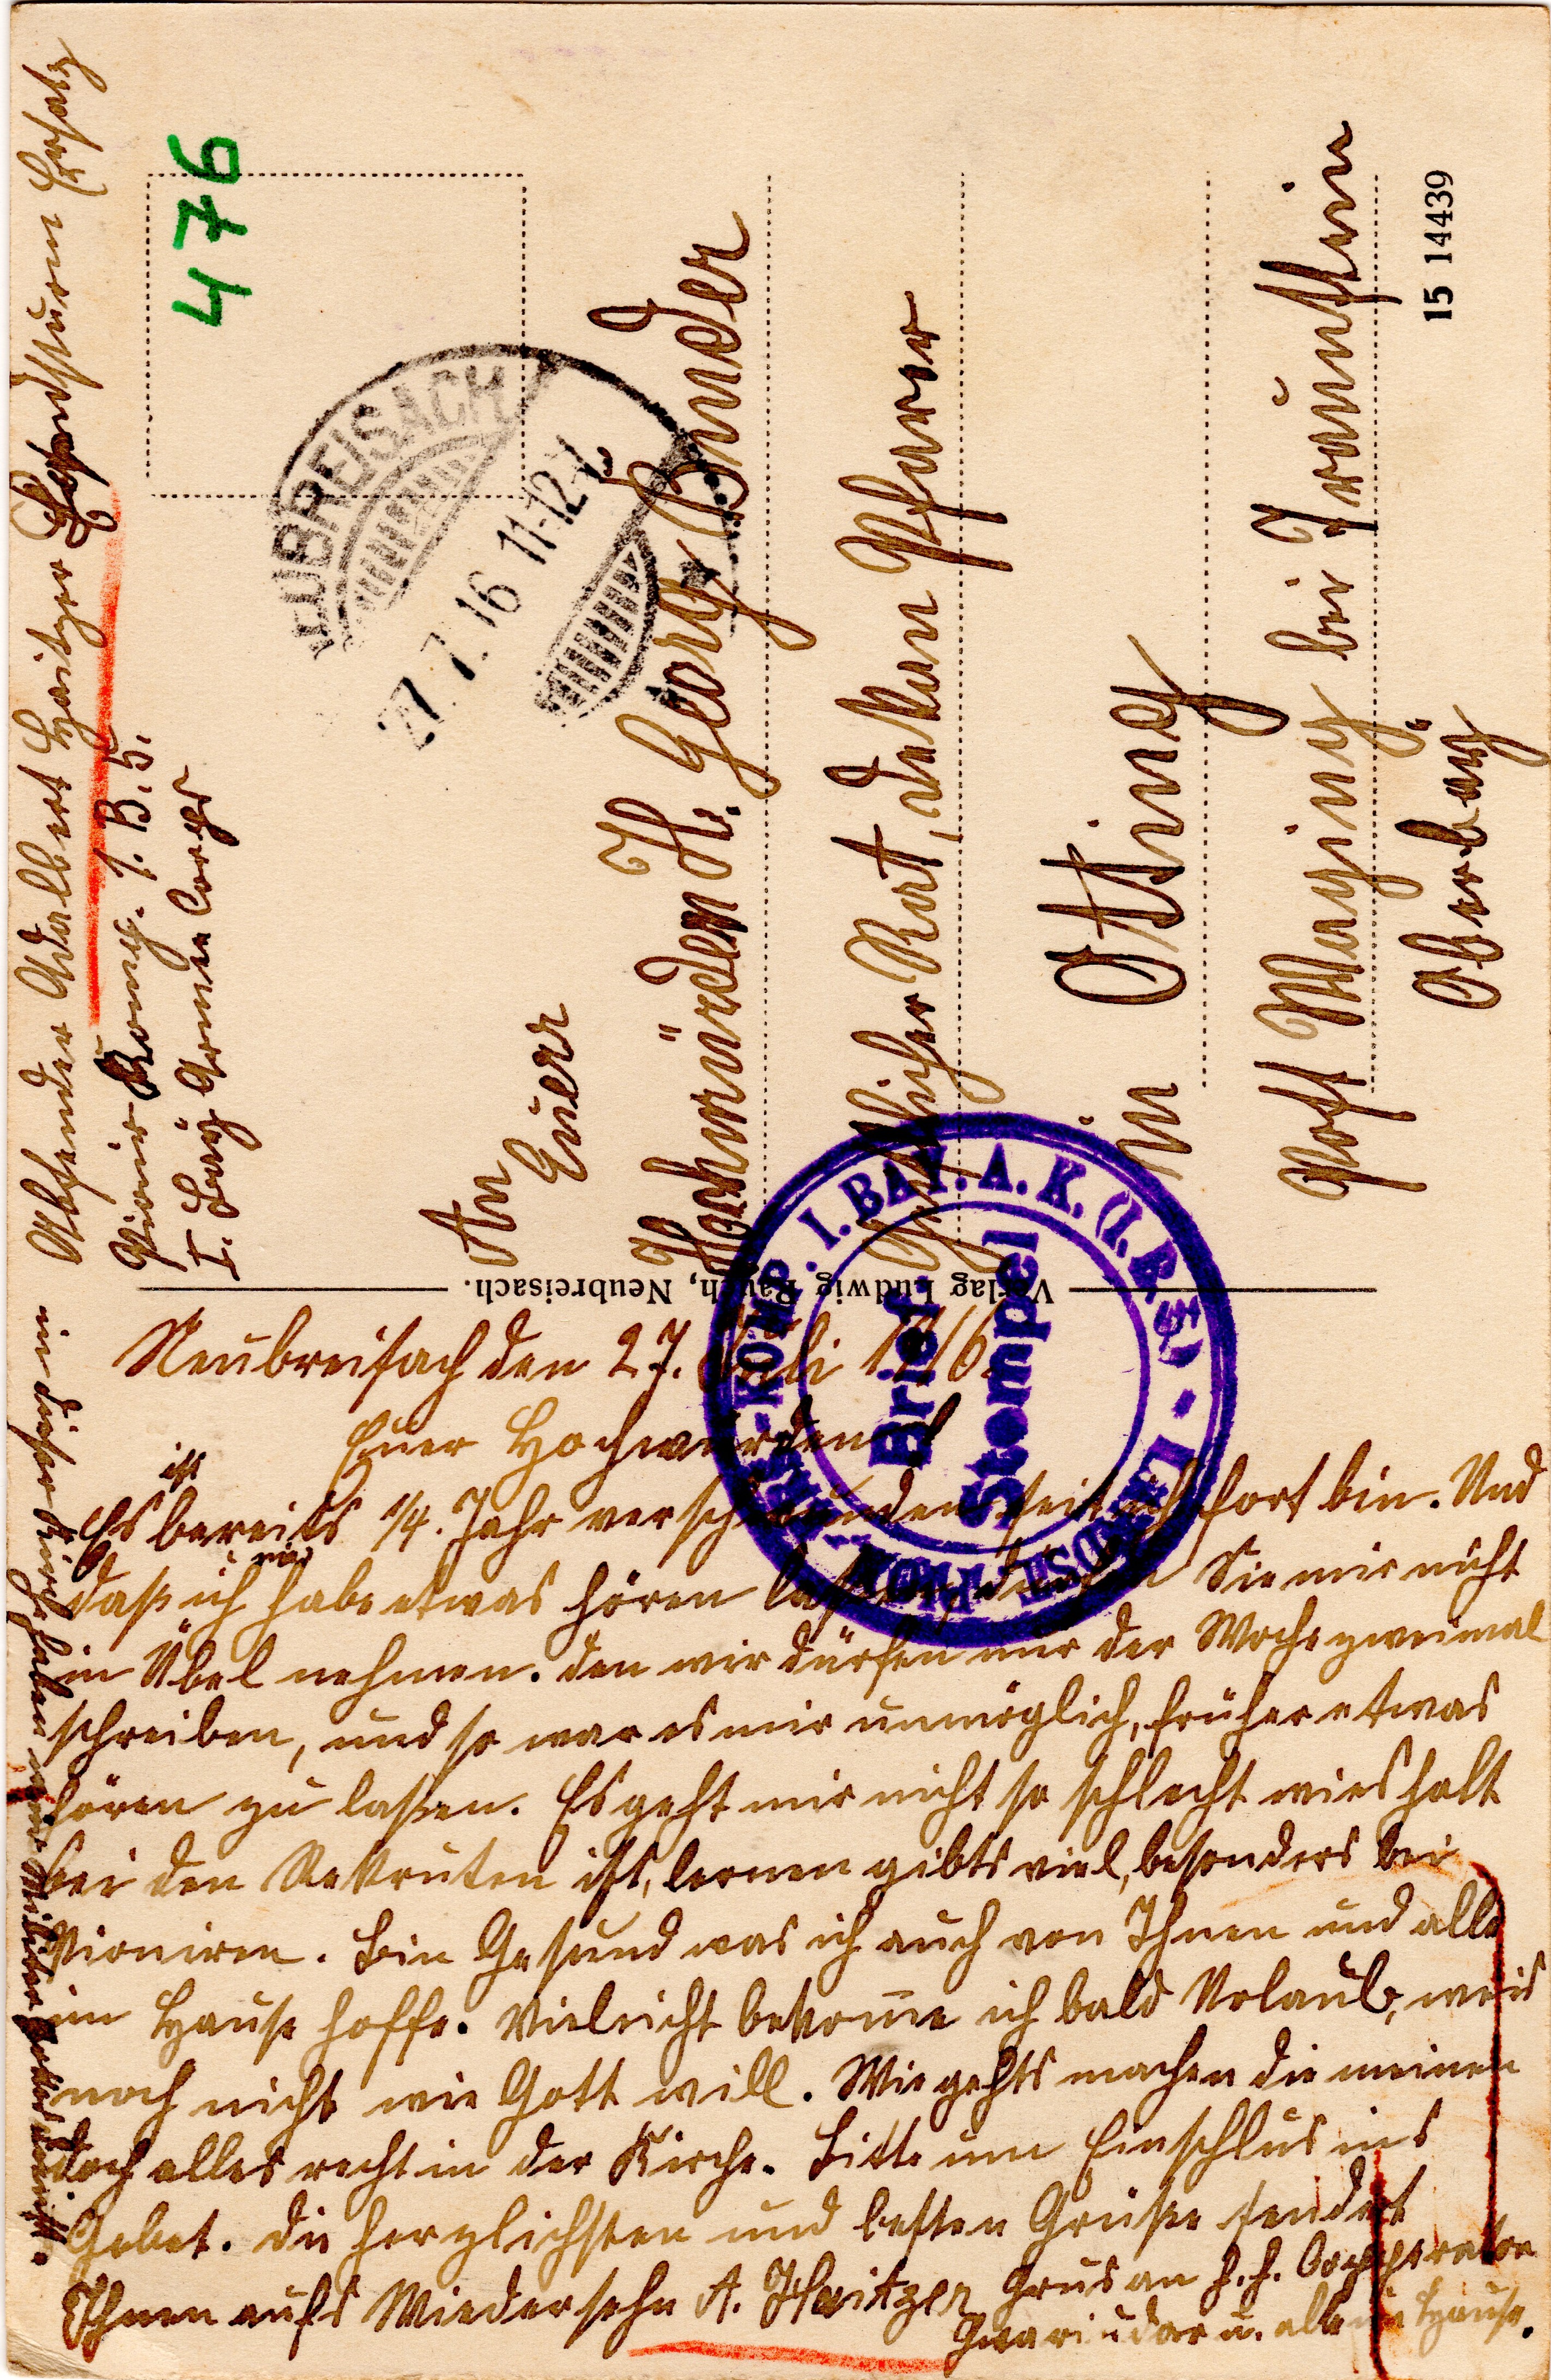 Absender Adalbert Haitzer Landsturm Ersatz
Pionir Komp. 1. B. 5.
I. Bay Armee Corps
476
NEUBREISACH
27.7.16 11-12 V.
An
Euer
Hochwürden H. Georg Binder
Geistlicher Rat, Dekan Pfarer
in Otting
Post Waging bei Traunstein
Oberbay
15 14439
Verlag Ludwig Rauch, Neubreisach.
I. BAY. A. K. (I. B. 5)
Brief
Stempel
Neubreisach den 27. Juli 1916.
Euer Hochwürden!
ist
Es bereits 1/4. Jahr verschwunden seit ich fort bin. Und
daß ich habe etwas hören laßen, dürfen Sie mir nicht
in Übel nehmen. den wir dürfen nur der Woche zweimal
schreiben, und so war es mir unmöglich, früher etwas
hören zu laßen. Es geht mir nicht so schlecht wies halt
bei den Rekruten ist, lernen gibts viel, besonders bei
Pioniren. Bin Gesund was ich auch von Ihnen und alle
im Hause hoffe. Vieleicht bekome ich bald Urlaub, weis
noch nicht wie Gott will. Wie gehts machen die meinen
doch alles recht in der Kirche. Bitte um Einschlus ins
Gebet. Die herzlichsten und besten Grüße sendet
Ihnen aufs Wiedersehn A. Haitzer Grus an H. H. Cooperator
u. alle im Hause.